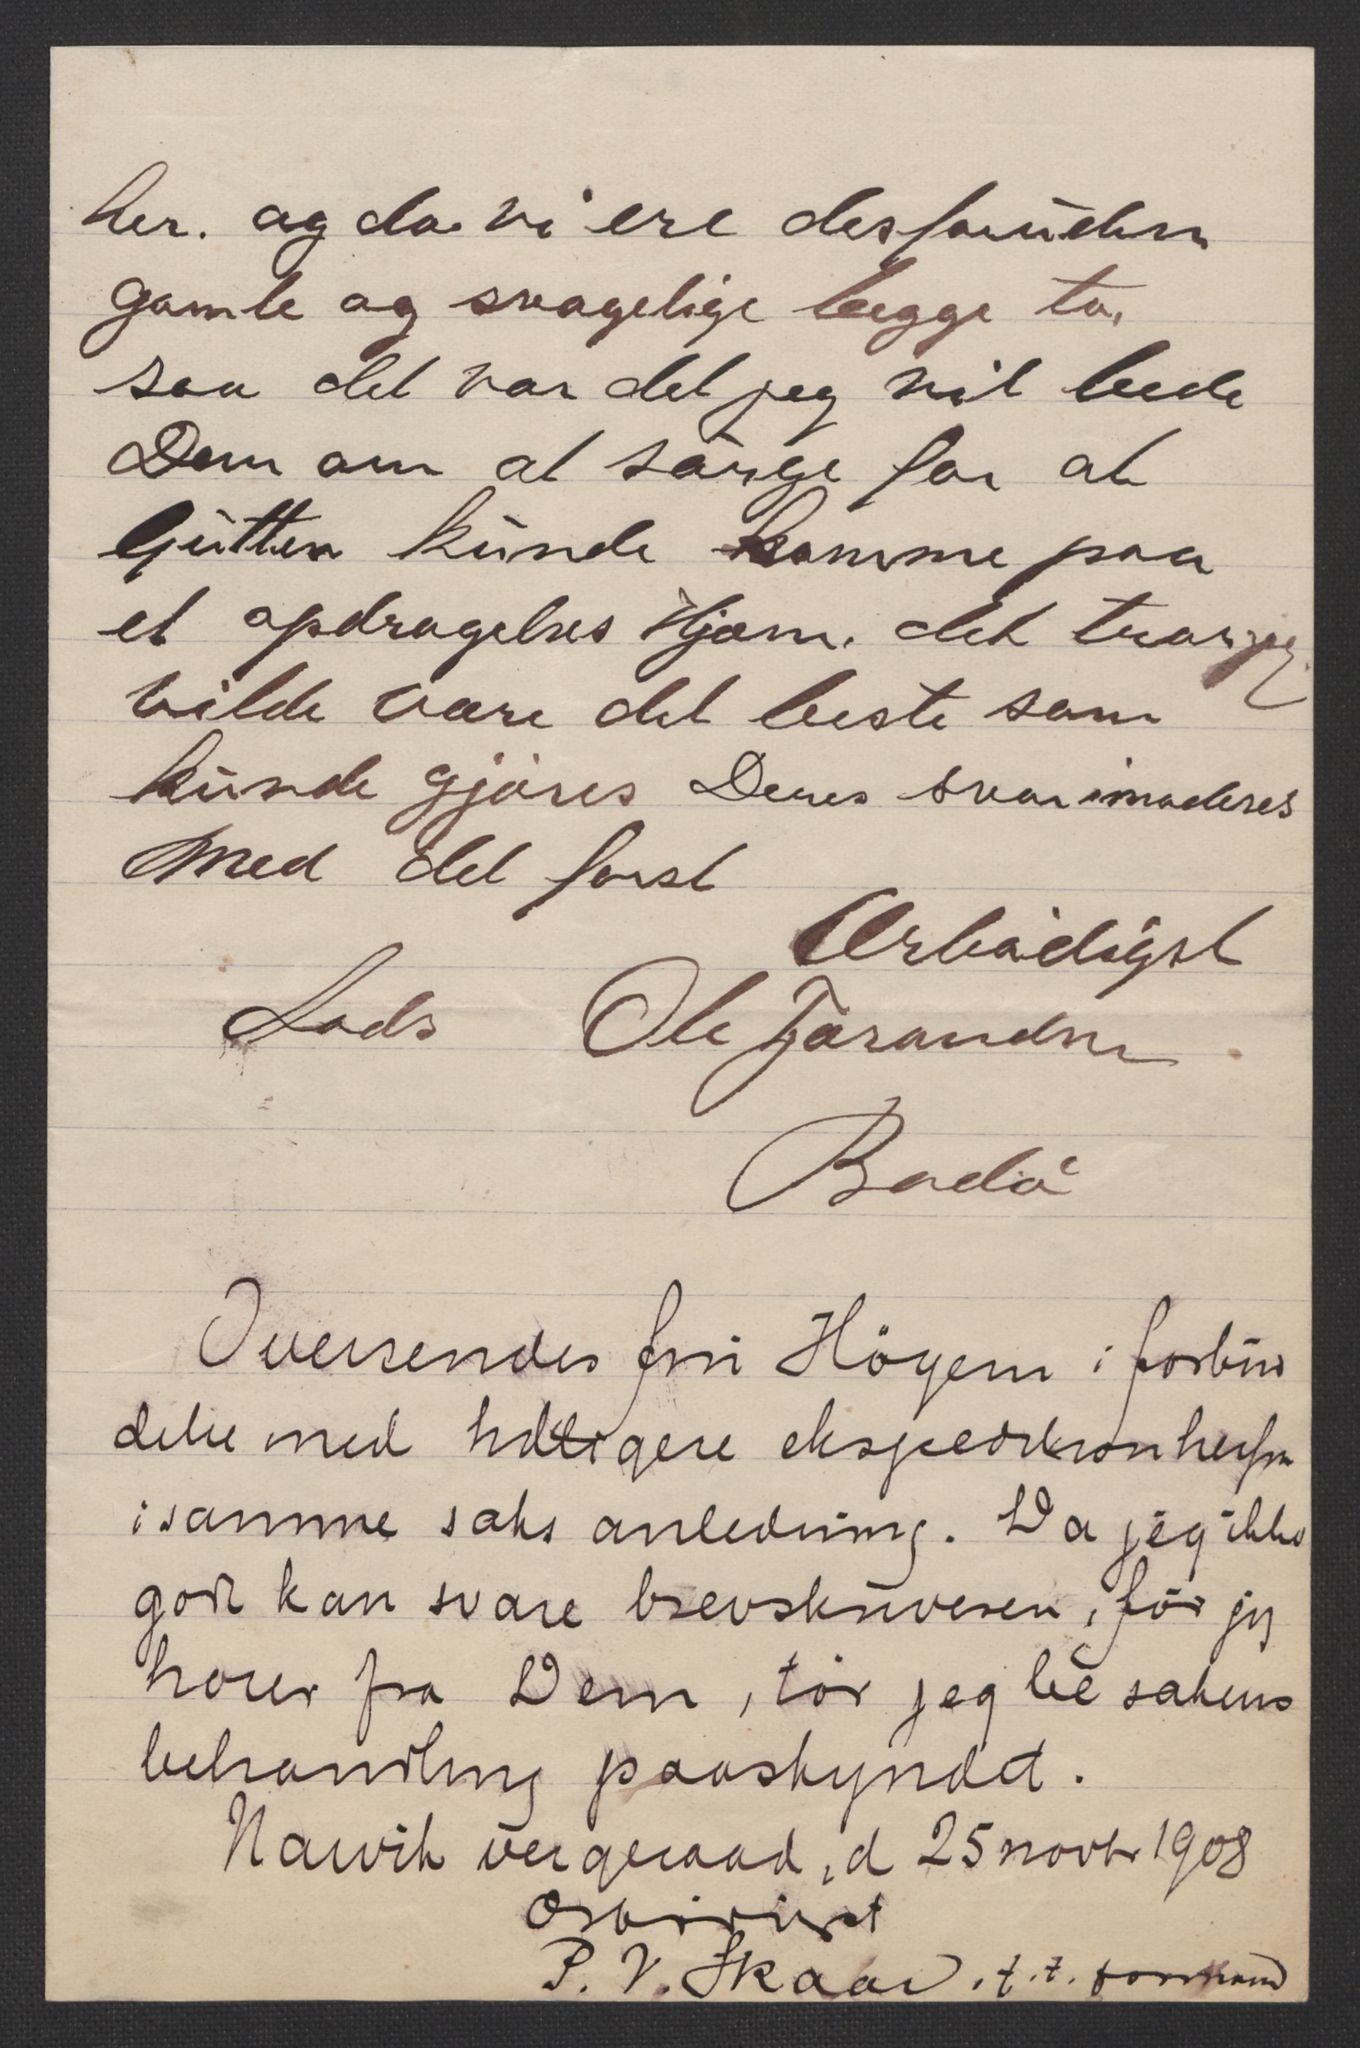 her. og da vi ere desforuden
gamle og svagelige begge to,
saa det var det jeg vil bede
Dem om at sörge for at
Gutten kunde komme paa
et opdragelses Hjem. det tror jeg
vilde være det beste som
kunde gjöres Deres svar imöderes
Med det först
Ærbödigst
Lods Ole Torandsen
Bodö
Oversendes fru Högem i forbin
delse med tidligere ekspedition herfra
i samme saks anledning. Da jeg ikke
godt kan svare brevskriveren, för jeg
hörer fra Dem, tör jeg be sakens
behandling paaskyndet.
Narvik vergeraad, d 25 novbr 1908
Ærbödigst
P. V. Skaar, f. t. formand